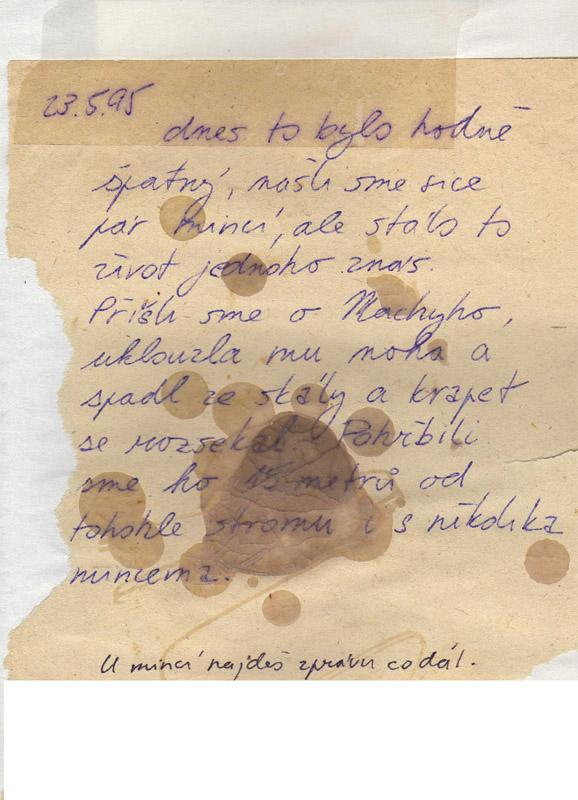 23.5.95
dnes to bylo hodně
špatný, našli sme sice
pár mincí, ale stálo to
život jednoho znás.
Přišli sme o Machyho,
uklouzla mu noha a
spadl ze skály a krapet
se rozsekal. Pohřbili
sme ho 15 metrů od
tohohle stromu i s několika
mincema.
U mincí najdeš zprávu co dál.